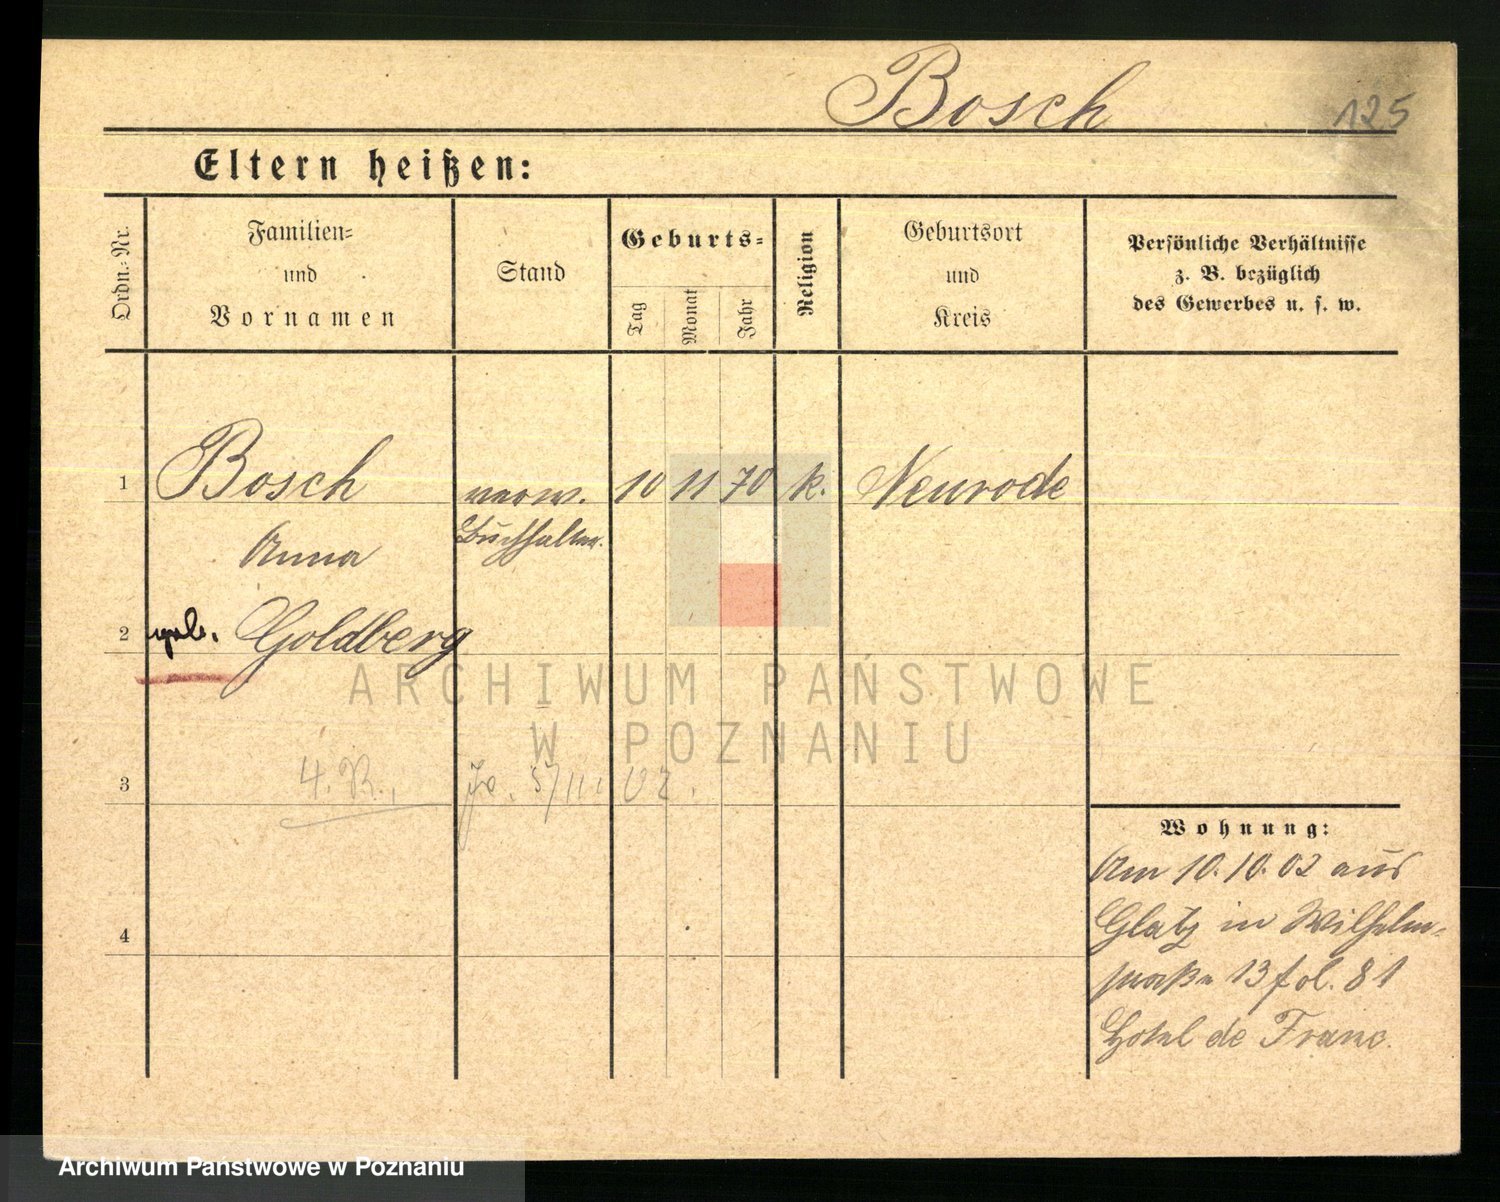 Bosch
125
Eltern heißen:
Ordn.-Nr.
Familien-
und
Vornamen
Stand
Geburts-
Tag
Monat
Jahr
Religion
Geburtsort
und
Kreis
Persönliche Verhältnisse
z. B. bezüglich
des Gewerbes u. s. w.
1 Bosch verw. 10 11 70 k. Neurode
Anna Buchhalter.
2 geb. Goldberg
ARCHIWUM PAŃSTWOWE
W POZNANIU
3 4. R. 5/11 02.
Wohnung:
Am 10.10.02 aus
Glatz in Wilhelm-
straße 13 fol. 81
Hotel de Franc.
4
Archiwum Państwowe w Poznaniu